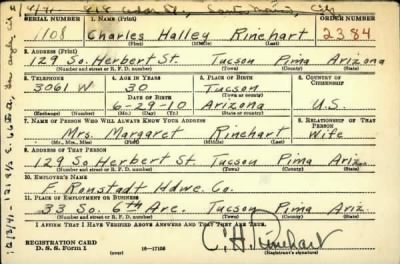 SERIAL NUMBER 1. NAME (Print) ORDER NUMBER
1108 Charles Halley Rinehart 2384
(First) (Middle) (Last)
2. ADDRESS (Print)
129 So. Herbert St. Tucson Pima Arizona
(Number and street or R. F. D. number) (Town) (County) (State)
3. TELEPHONE 4. AGE IN YEARS 5. PLACE OF BIRTH 6. COUNTRY OF CITIZENSHIP
3061 W 30 Tucson
DATE OF BIRTH (Town or county)
6-29-10 Arizona U.S.
(Exchange) (Number) (Mo.) (Day) (Yr.) (State or country)
7. NAME OF PERSON WHO WILL ALWAYS KNOW YOUR ADDRESS 8. RELATIONSHIP OF THAT PERSON
Mrs. Margaret Rinehart Wife
(Mr., Mrs., Miss) (First) (Middle) (Last)
9. ADDRESS OF THAT PERSON
129 So. Herbert St. Tucson Pima Ariz.
(Number and street or R. F. D. number) (Town) (County) (State)
10. EMPLOYER'S NAME
F. Ronstadt Hdwe. Co.
11. PLACE OF EMPLOYMENT OR BUSINESS
33 So. 6th Ave. Tucson Pima Ariz.
(Number and street or R. F. D. number) (Town) (County) (State)
I AFFIRM THAT I HAVE VERIFIED ABOVE ANSWERS AND THAT THEY ARE TRUE.
C. H. Rinehart
REGISTRATION CARD
D. S. S. Form 1 (over) 16-17105 (Registrant's signature)